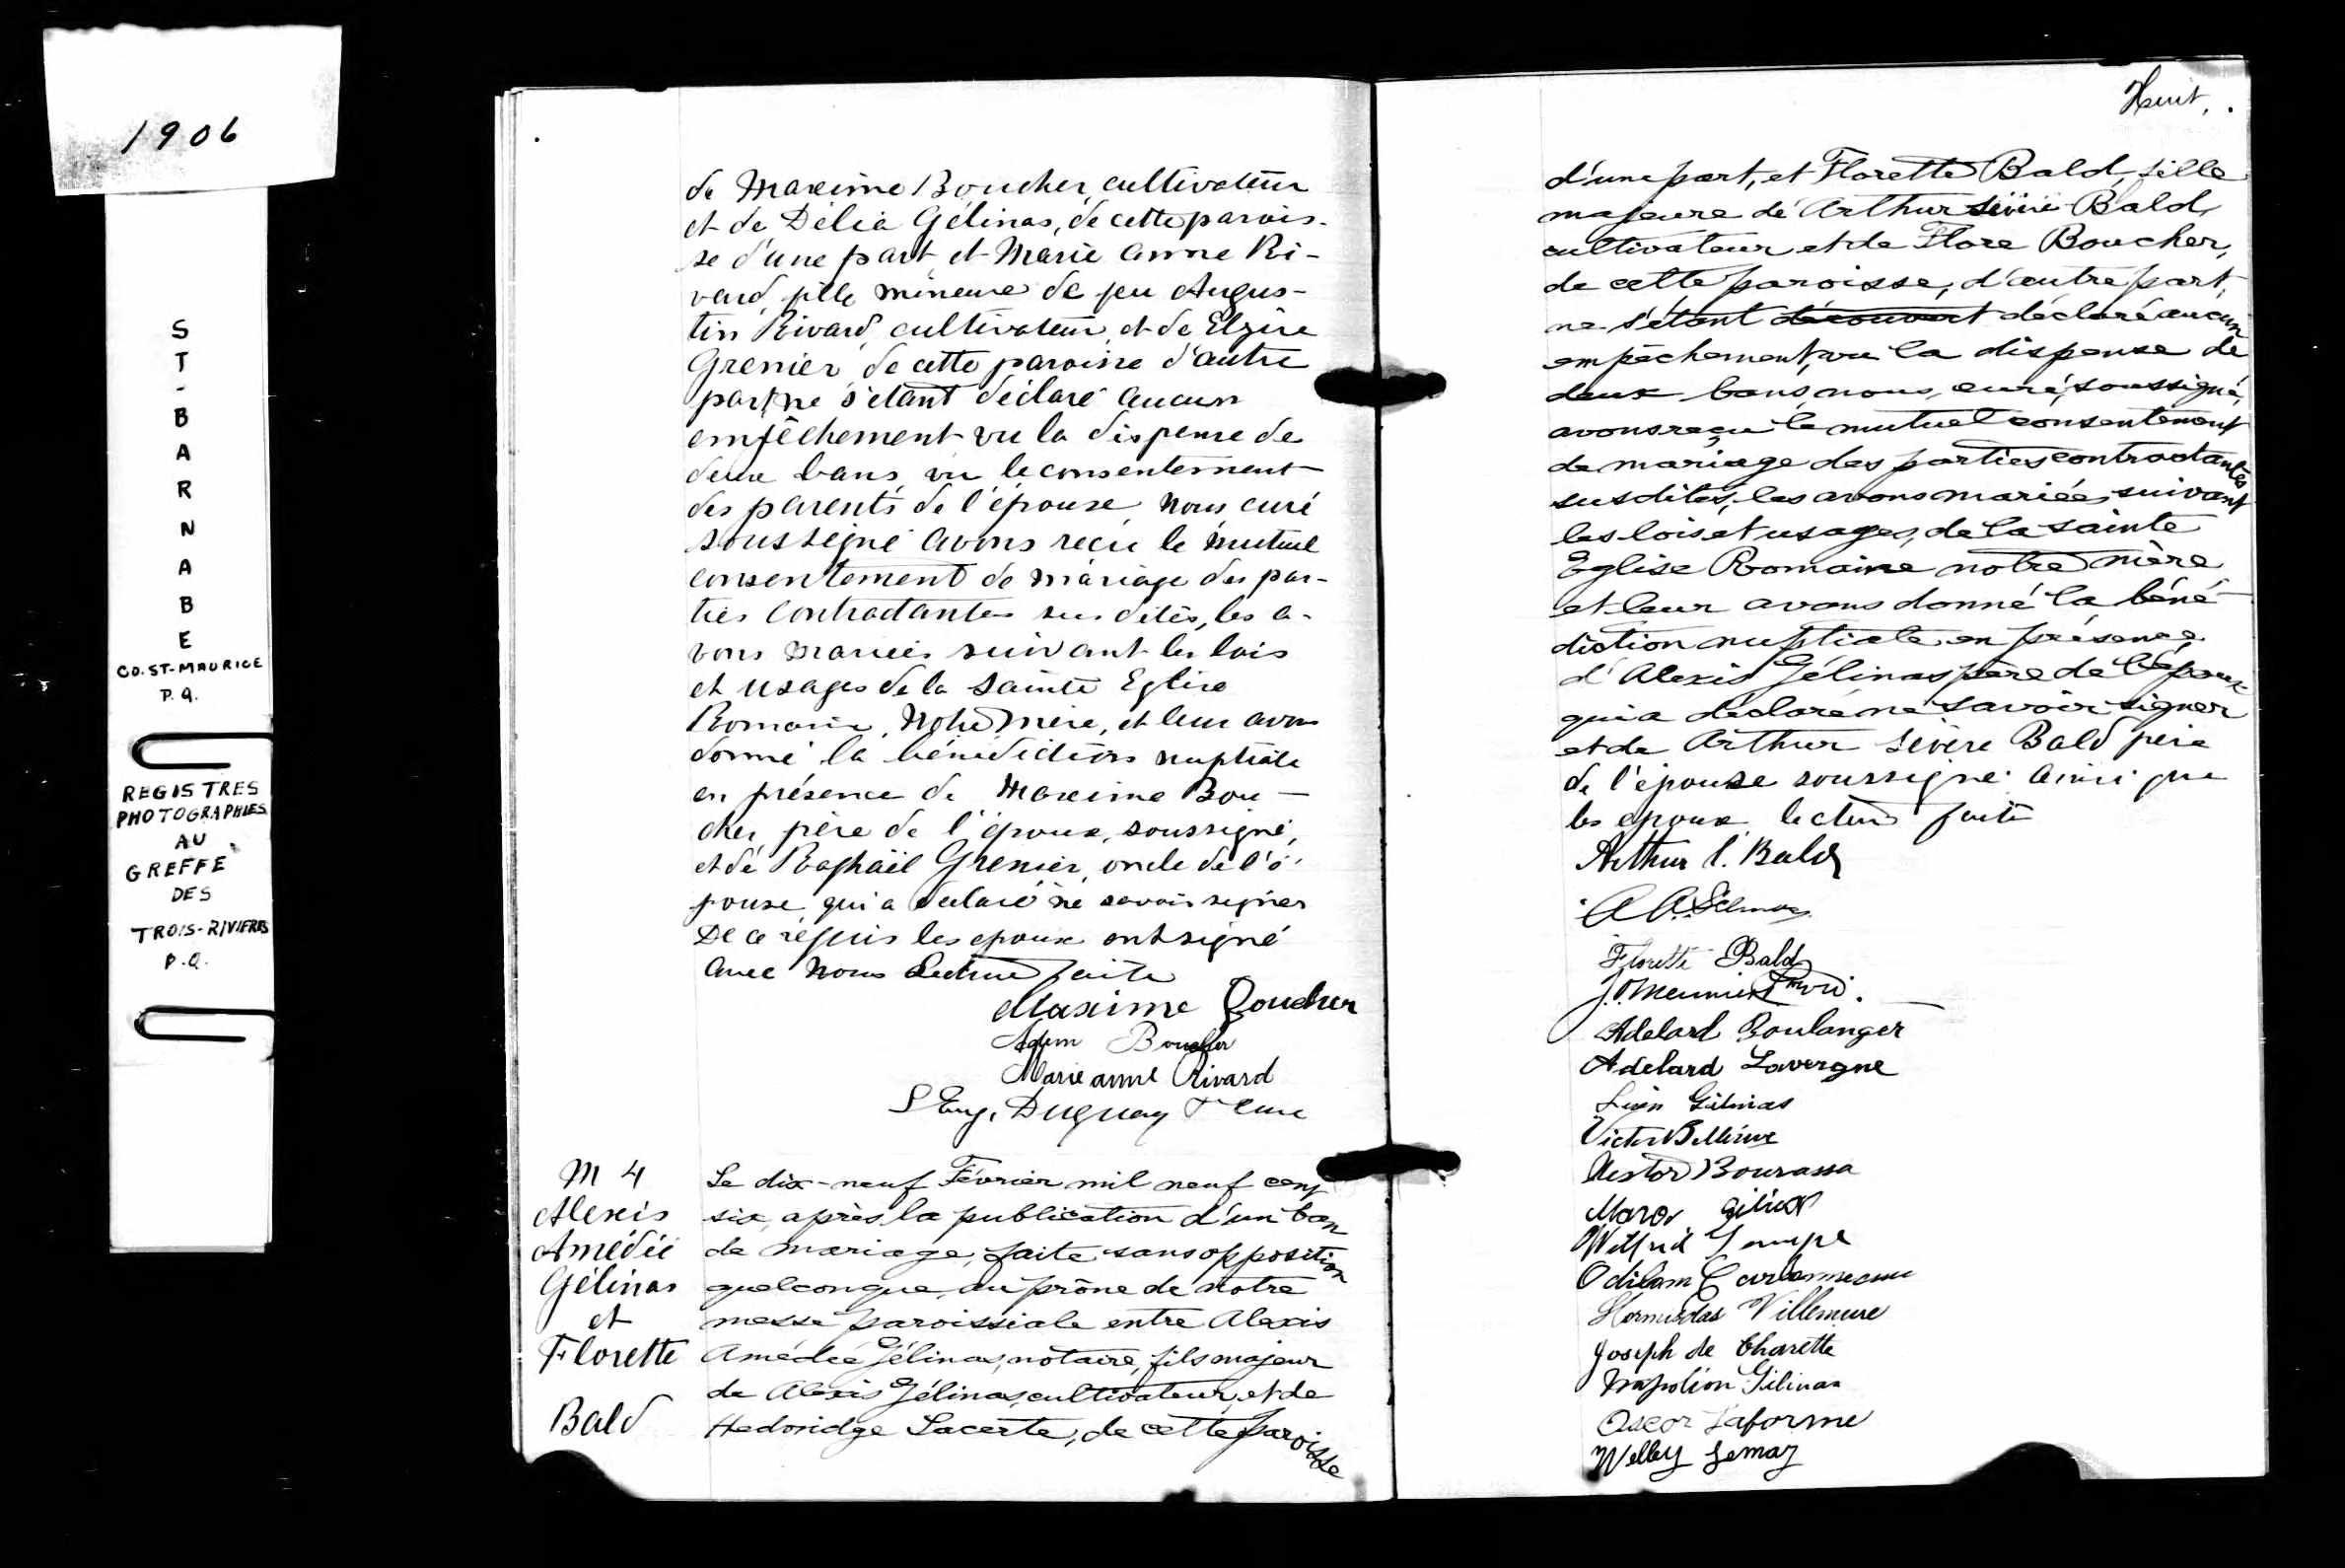 1906
S
T
-
B
A
R
N
A
B
E
CO. ST-MAURICE
P.Q.
REGISTRES
PHOTOGRAPHIES
AU
GREFFE
DES
TROIS-RIVIERES
P.Q.
de Maxime Boucher, cultivateur
et de Délia Gélinas, de cette parois-
se d'une part, et Marie Anne Ri-
vard, fille mineure de feu Augus-
tin Rivard, cultivateur, et de Elzire
Grenier de cette paroisse d'autre
part, ne s'étant déclaré aucun
empêchement vu la dispense de
deux bans, vu le consentement
des parents de l'épouse, Nous curé
soussigné avons reçu le mutuel
consentement de mariage des par-
ties contractantes sus dites, les a-
vons mariés suivant les lois
et usages de la Sainte Eglise
Romaine, Notre Mère, et leur avons
donné la bénédiction nuptiale
en présence de Maxime Bou-
cher père de l'époux, soussigné,
et de Raphaël Grenier, oncle de l'é-
pouse, qui a déclaré ne savoir signer
De ce requis les epoux ont signé
avec nous Lecture faite
Maxime Boucher
Boucher
Marie anne Rivard
S Eug. Duguay Ptre Curé
M 4
Alexis
Amédée
Gélinas
et
Florette
Bald
Le dix-neuf Février mil neuf cent
six, après la publication d'un ban
de mariage, faite sans opposition
quelconque, au prône de notre
messe paroissiale entre Alexis
Amédée Gélinas, notaire, fils majeur
de Alexis Gélinas, cultivateur, et de
Hedwidge Lacerte, de cette paroisse
Huit.
d'une part, et Florette Bald, fille
majeure de Arthur Sévère Bald,
cultivateur et de Flore Boucher,
de cette paroisse, d'autre part,
ne s'étant découvert déclaré aucun
empêchement, vu la dispense de
deux bans, nous, curé, soussigné,
avons reçu le mutuel consentement
de mariage des parties contractantes
susdites, les avons mariés, suivant
les lois et usages, de la Sainte
Eglise Romaine notre mère
et leur avons donné la béné-
diction nuptiale en présence
d'Alexis Gélinas père de l'époux
qui a déclaré ne savoir signer
et de Arthur Sévère Bald père
de l'épouse soussigné ainsi que
les epoux, lecture faite
Arthur S. Bald
A A. Gélinas
Florette Bald
J. O. Meunier
Adelard Boulanger
Adelard Lavergne
Gélinas
Victor Bellerive
Nestor Bourassa
Wilfrid Lampe
Odilon Carbonneau
Hermidas Villemure
Joseph de Charette
Napoléon Gélinas
Oscar Laforme
Welley Lemay